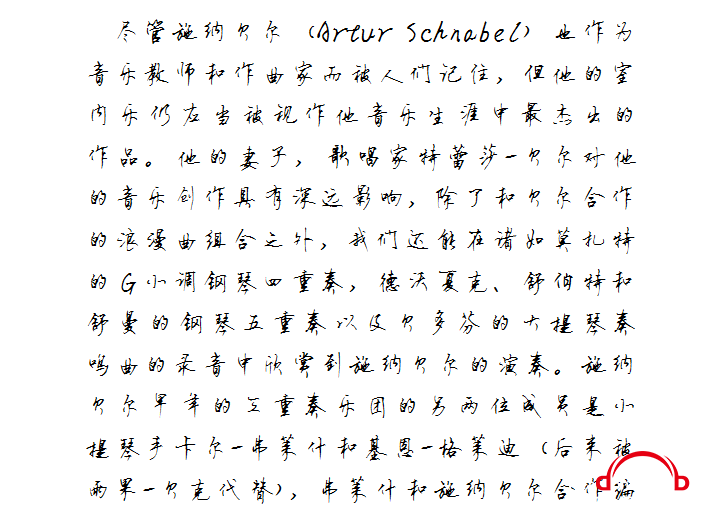 尽管施纳贝尔（Artur Schnabel）也作为
音乐教师和作曲家而被人们记住，但他的室
内乐仍应当被视作他音乐生涯中最杰出的
作品。他的妻子，歌唱家特蕾莎-贝尔对他
的音乐创作具有深远影响，除了和贝尔合作
的浪漫曲组合之外，我们还能在诸如莫扎特
的G小调钢琴四重奏，德沃夏克、舒伯特和
舒曼的钢琴五重奏以及贝多芬的大提琴奏
鸣曲的录音中欣赏到施纳贝尔的演奏。施纳
贝尔早年的三重奏乐团的另两位成员是小
提琴手卡尔-弗莱什和基恩-格莱迪（后来被
雨果-贝克代替），弗莱什和施纳贝尔合作编